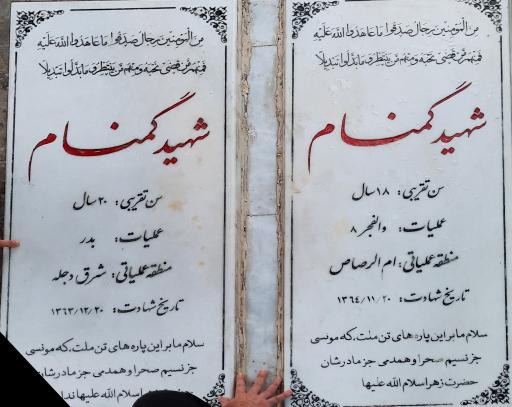 من المؤمنین رجال صدقوا ما عاهدوا الله علیه
فمنهم من قضی نحبه و منهم من ینتظر و ما بدلوا تبدیلا
شهید گمنام
سن تقریبی: ۱۸ سال
عملیات: والفجر ۸
منطقه عملیاتی: ام الرصاص
تاریخ شهادت: ۱۳۶۴/۱۱/۲۰
سلام ما بر این پاره های تن ملت، که مونسی
جز نسیم صحرا و همدمی جز مادرشان
حضرت زهرا سلام الله علیها
من المؤمنین رجال صدقوا ما عاهدوا الله علیه
فمنهم من قضی نحبه و منهم من ینتظر و ما بدلوا تبدیلا
شهید گمنام
سن تقریبی: ۲۰ سال
عملیات: بدر
منطقه عملیاتی: شرق دجله
تاریخ شهادت: ۱۳۶۳/۱۲/۲۰
سلام ما بر این پاره های تن ملت، که مونسی
جز نسیم صحرا و همدمی جز مادرشان
زهرا سلام الله علیها